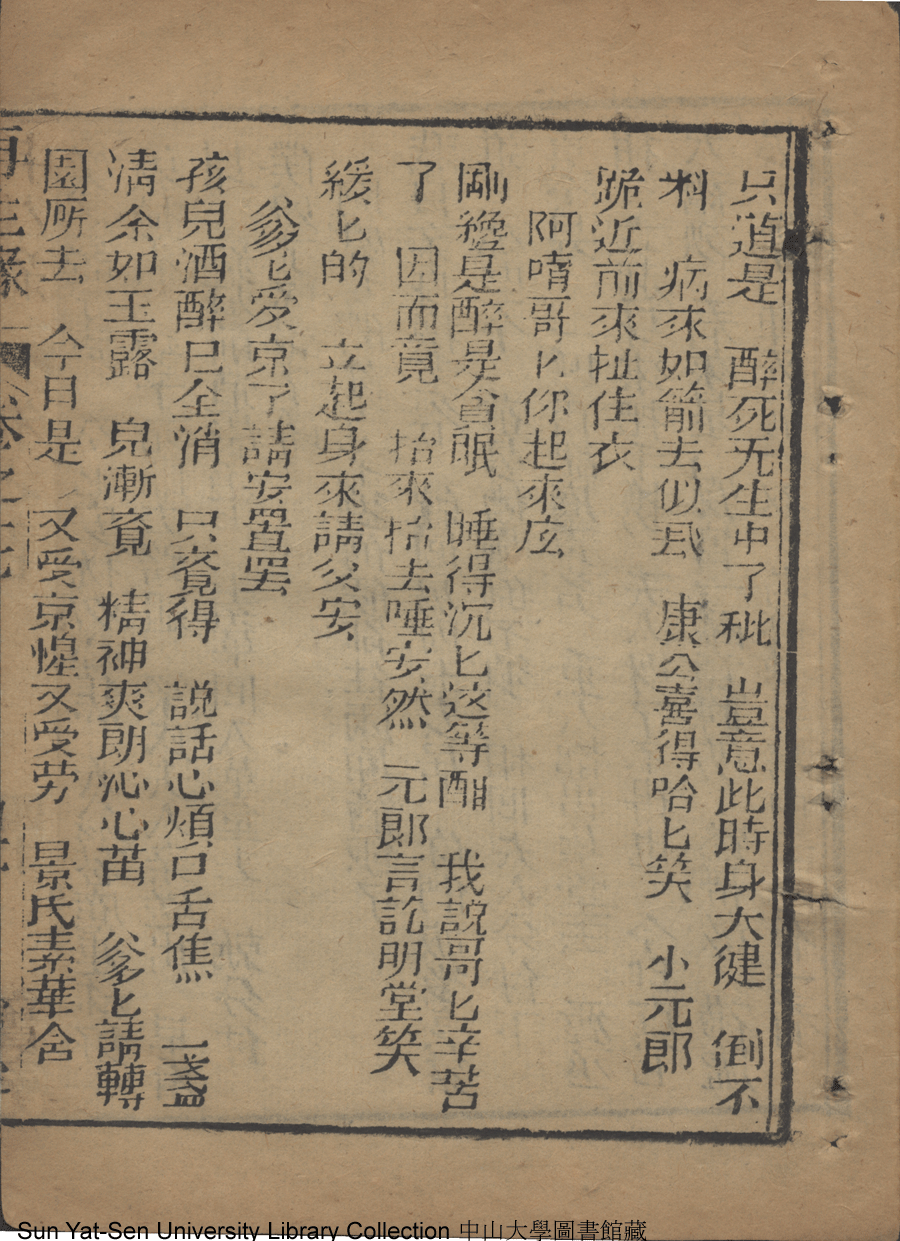 只道是　醉死无生中了秕　豈意此時身大健　倒不
料　病來如箭去似㺯　康公喜得哈匕笑　小元郎
跪近前來扯住衣
阿唷哥匕你起來庅
剛纔是醉是貪眠　睡得沉匕这等酣　我說哥匕辛苦
了　因而竟　抬來抬去唾安然　元郎言訖明堂笑
緩匕的　立起身來請父安
爹匕受京了請安置罷
孩兒酒醉已全消　只𮗜得　説話心煩口舌焦　一盞
清余如玉露　兒漸𮗜　精神爽朗沁心苗　爹匕請轉
園所去　今日是　又受京惶又受劳　景氏素華含
再生緣　卷之十七
Sun Yat-Sen University Library Collection 中山大學圖書館藏